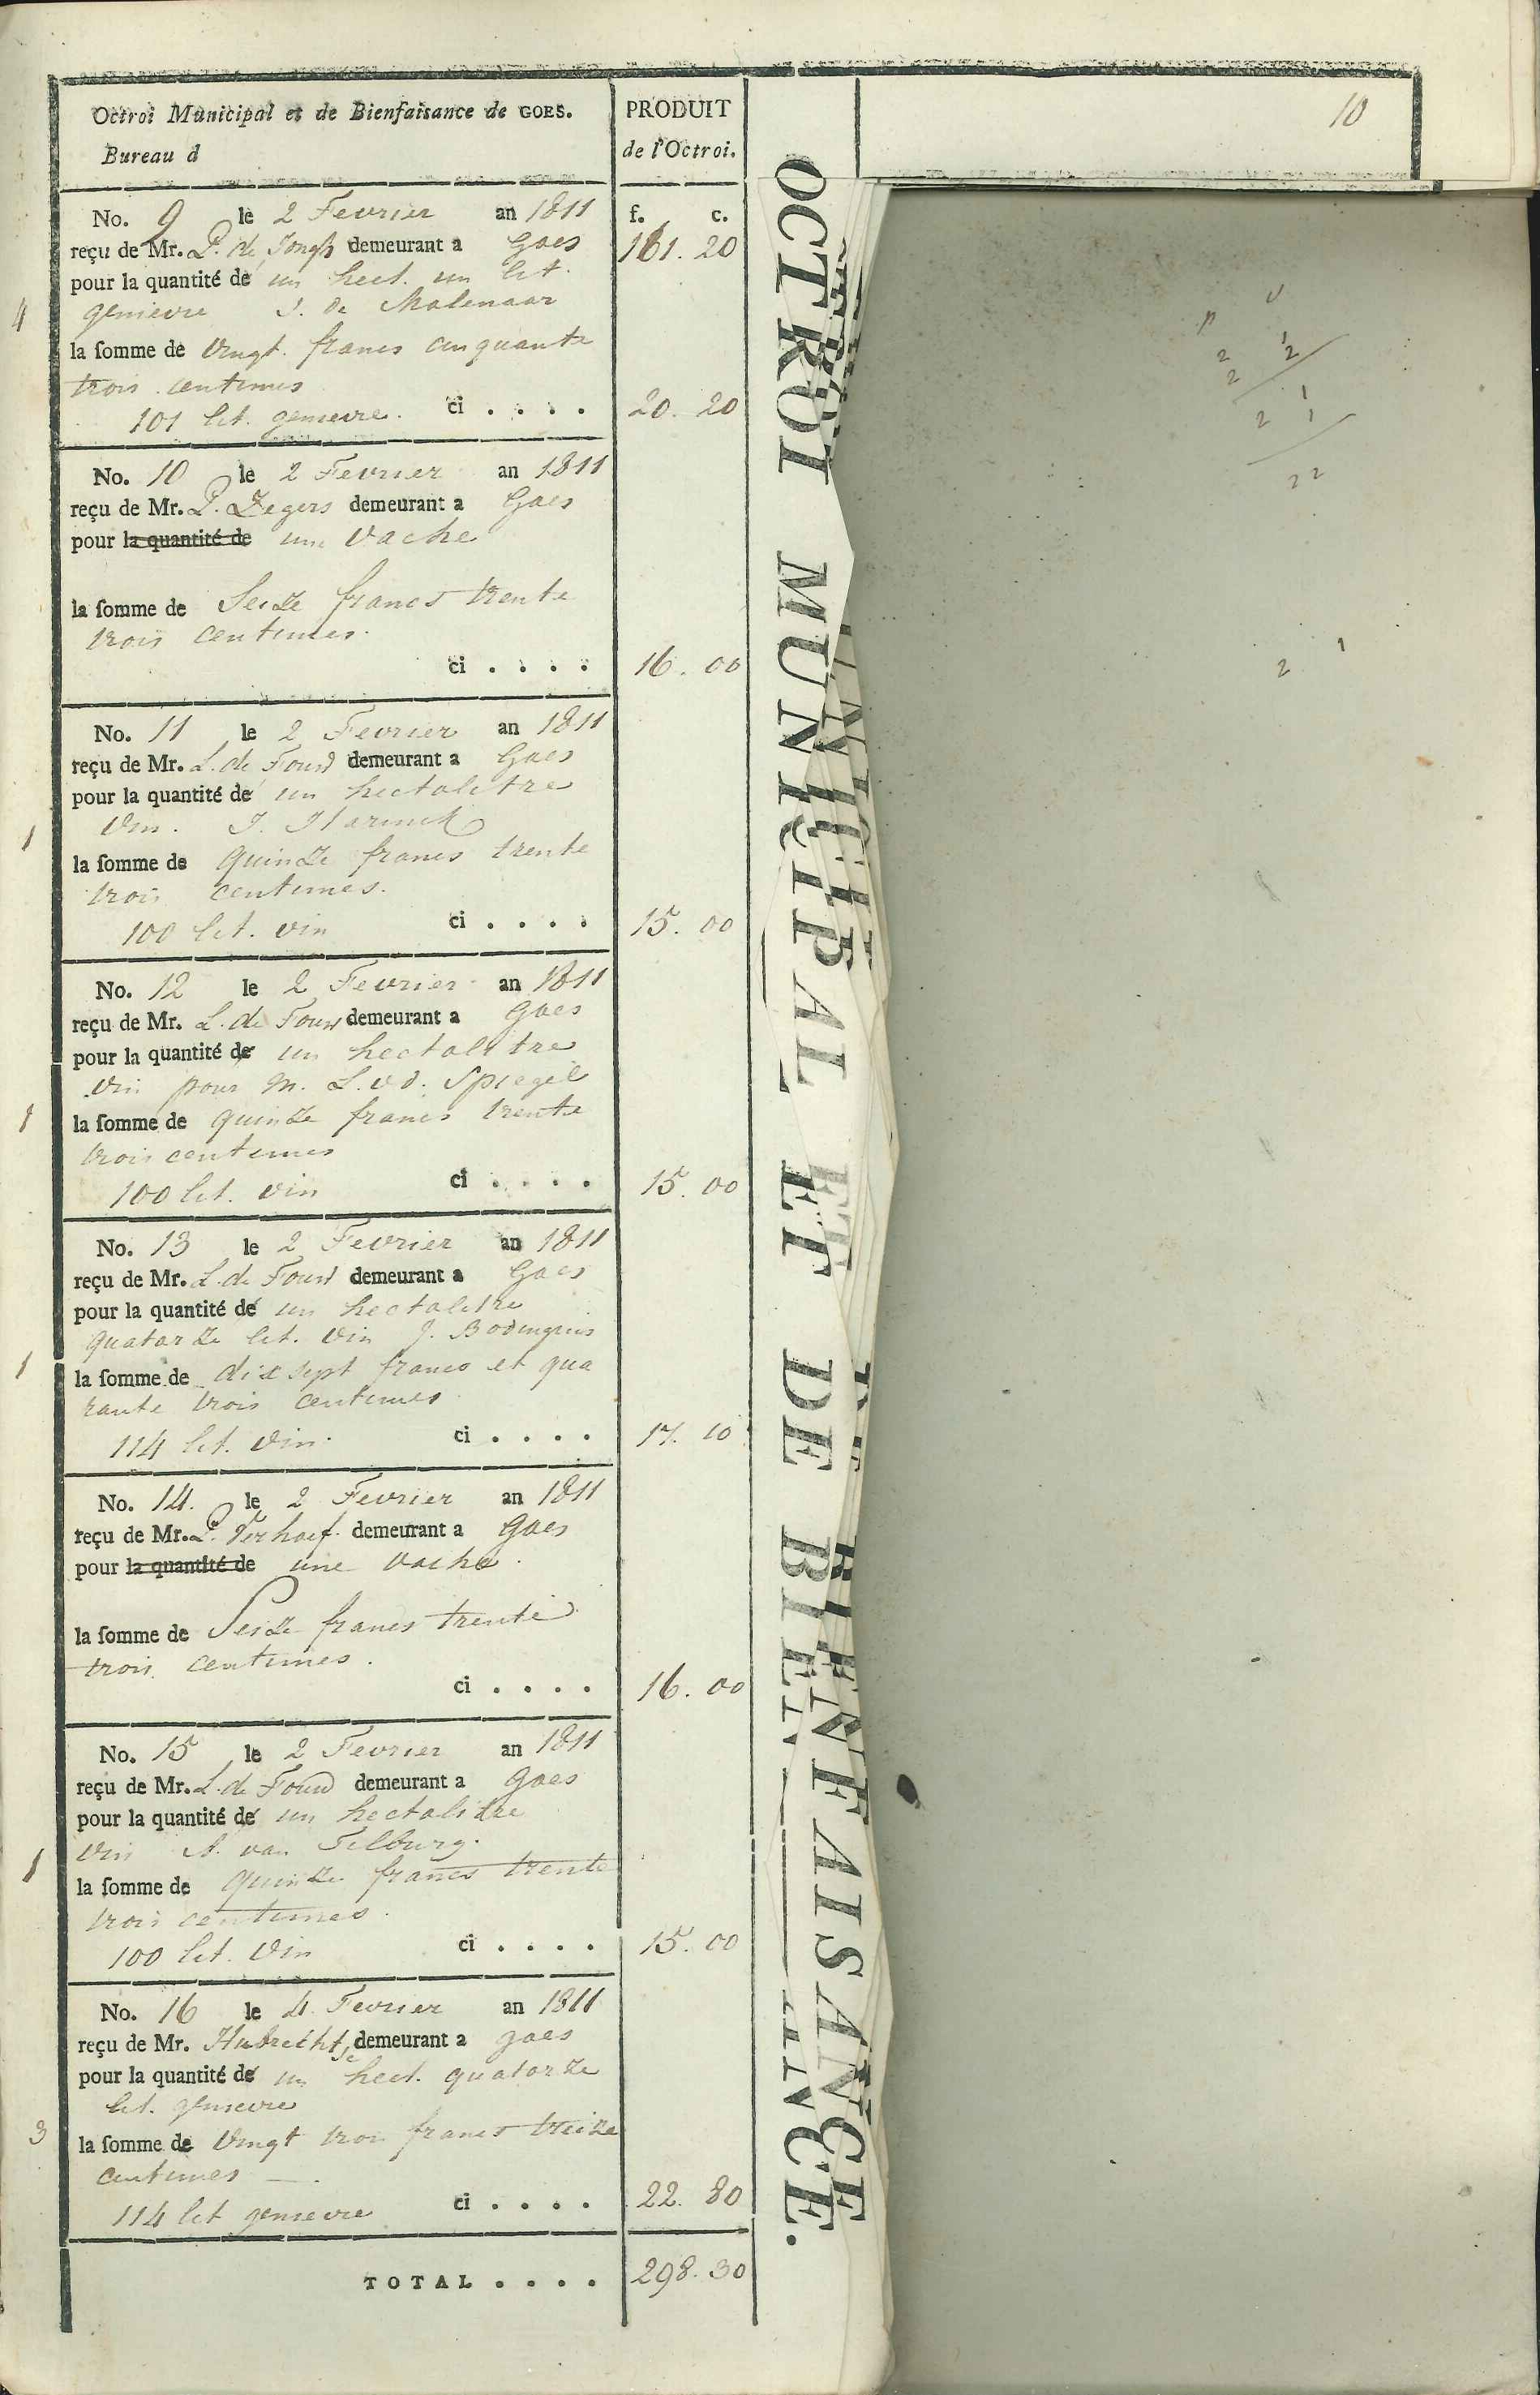 Octroi Municipal et de Bienfaisance de GOES.
Bureau d
PRODUIT
de l'Octroi.
10
f. c.
161. 20
No. 9 le 2 Fevrier an 1811
reçu de Mr. P. de Jongh demeurant a Goes
pour la quantité de un hect. un lit.
genievre J. de Molenaar
4
la somme de vingt francs cinquante
trois centimes
101 lit. genievre. ci . . . . 20. 20
No. 10 le 2 Fevrier an 1811
reçu de Mr. P. Zegers demeurant a Goes
pour la quantité de une vache
la somme de Seize francs trente
trois centimes.
ci . . . . 16. 00
No. 11 le 2 Fevrier an 1811
reçu de Mr. L. de demeurant a Goes
pour la quantité de un hectolitre
vin. J. Harinck
1
la somme de quinze francs trente
trois centimes.
100 lit. vin ci . . . . 15. 00
No. 12 le 2 Fevrier an 1811
reçu de Mr. L. de demeurant a Goes
pour la quantité de un hectolitre
vin pour m. L. v d. Spiegel
1
la somme de quinze francs trente
trois centimes
100 lit. vin ci . . . . 15. 00
No. 13 le 2 Fevrier an 1811
reçu de Mr. L. de demeurant a Goes
pour la quantité de un hectolitre
quatorze lit. vin J.
1
la somme de dix sept francs et qua
rante trois centimes
114 lit. vin. ci . . . . 17. 10
No. 14. le 2 Fevrier an 1811
reçu de Mr. P. Verhoef. demeurant a Goes
pour la quantité de une vache.
la somme de Seize francs trente
trois centimes.
ci . . . . 16. 00
No. 15 le 2 Fevrier an 1811
reçu de Mr. L. de demeurant a Goes
pour la quantité de un hectolitre
vin A. van Tilburg.
1
la somme de quinze francs trente
trois centimes.
100 lit. vin ci . . . . 15. 00
No. 16 le 4 Fevrier an 1811
reçu de Mr. Hubrechtse demeurant a goes
pour la quantité de un hect. quatorze
lit. genievre
3
la somme de vingt trois francs treize
centimes —.
114 lit genievre ci . . . . 22. 80
TOTAL . . . . 298. 30
OCTROI MUNICIPAL ET DE BIENFAISANCE.